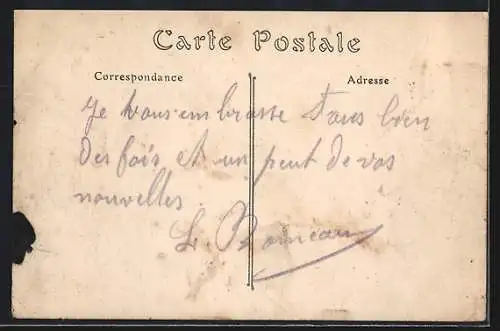 Carte Postale
Correspondance
Adresse
Je vous embrasse Tous bien
des fois et un peut de vos
nouvelles
L.